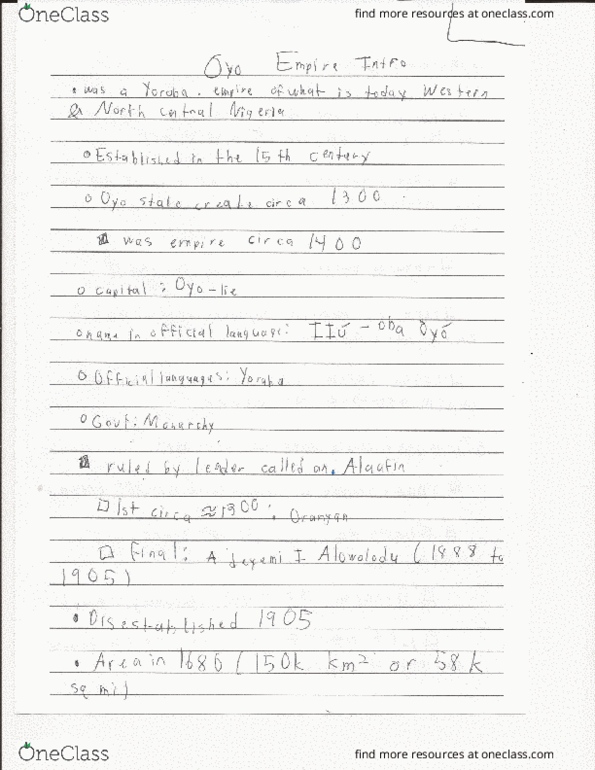 OneClass
find more resources at oneclass.com
Oyo Empire Intro
• was a Yoraba. empire of what is today Western
& North central Nigeria
o Established in the 15th century
o Oyo state create circa 1300
was empire circa 1400
o capital: Oyo-lie
o name in official language: IIú - oba Oyó
o Official languages: Yoraba
o Govt: Monarchy
ruled by leader called an. Alaafin
□ 1st circa ≈1300: Oranyan
□ Final: Ajeyemi I Alowolodu (1888 to
1905)
• Disestablished 1905
• Area in 1680 (150k km² or 58k
sq mi)
OneClass
find more resources at oneclass.com